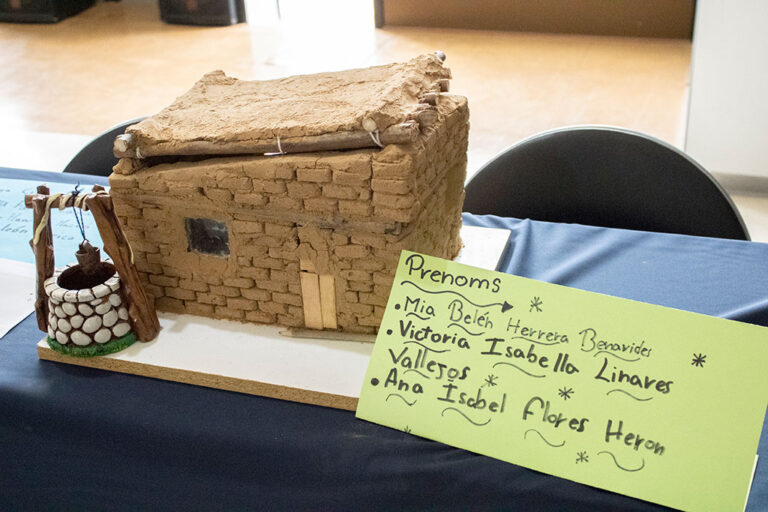 Prenoms
• Mia Belén Herrera Benavides
• Victoria Isabella Linares
Vallejos
• Ana Isabel Flores Heron